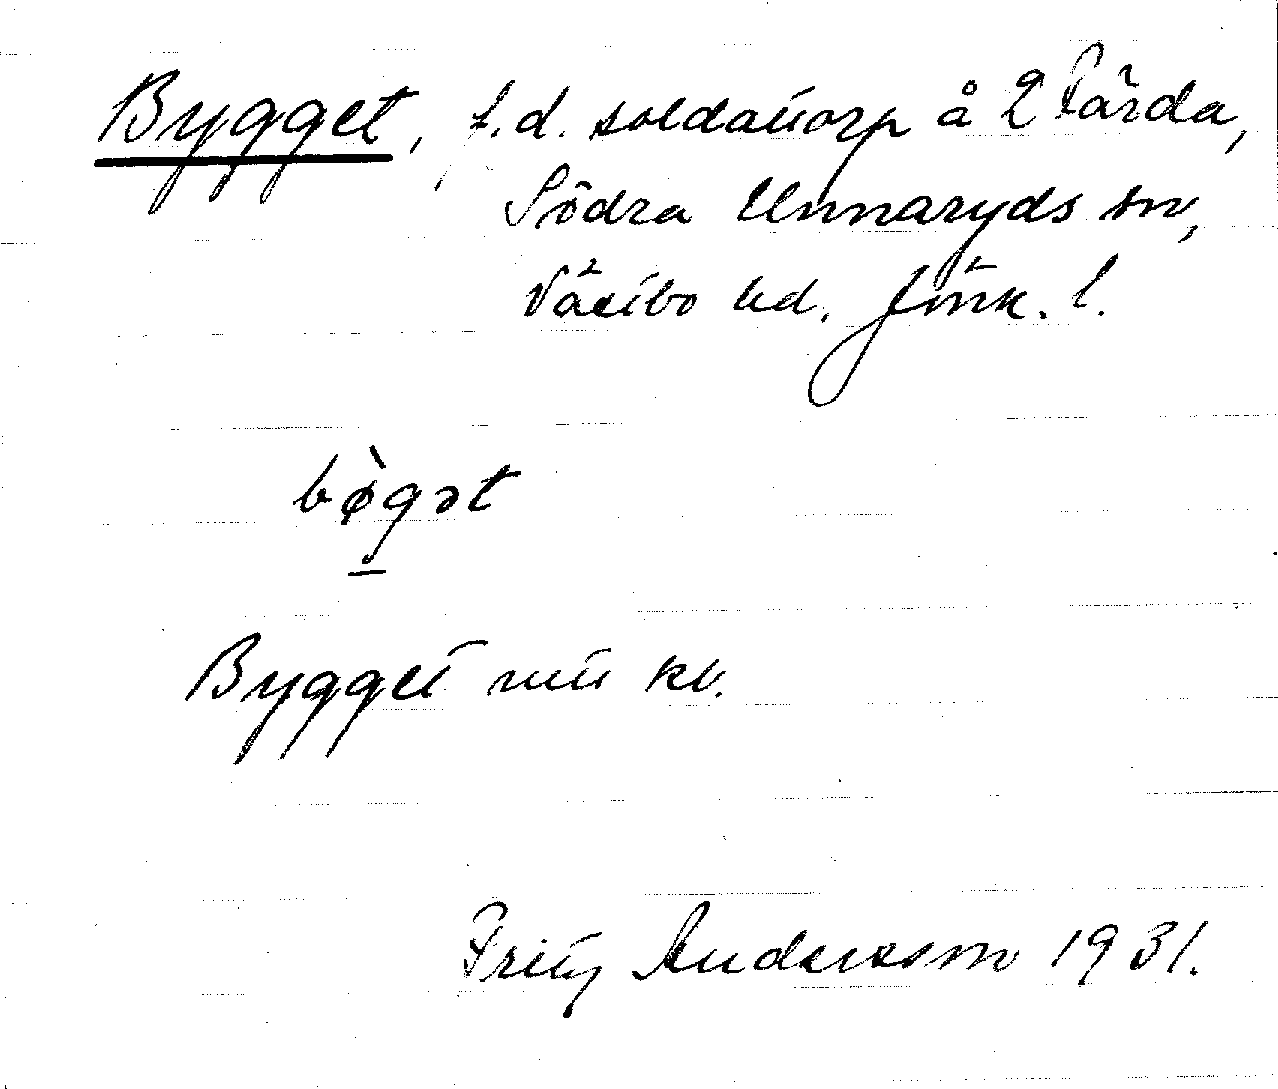 Bygget, f.d. soldattorp å 2 Färda,
Södra Unnaryds sn,
Västbo hd. Jönk. l.
bø̀gət
Bygget mtr kb.
Fritz Andersson 1931.